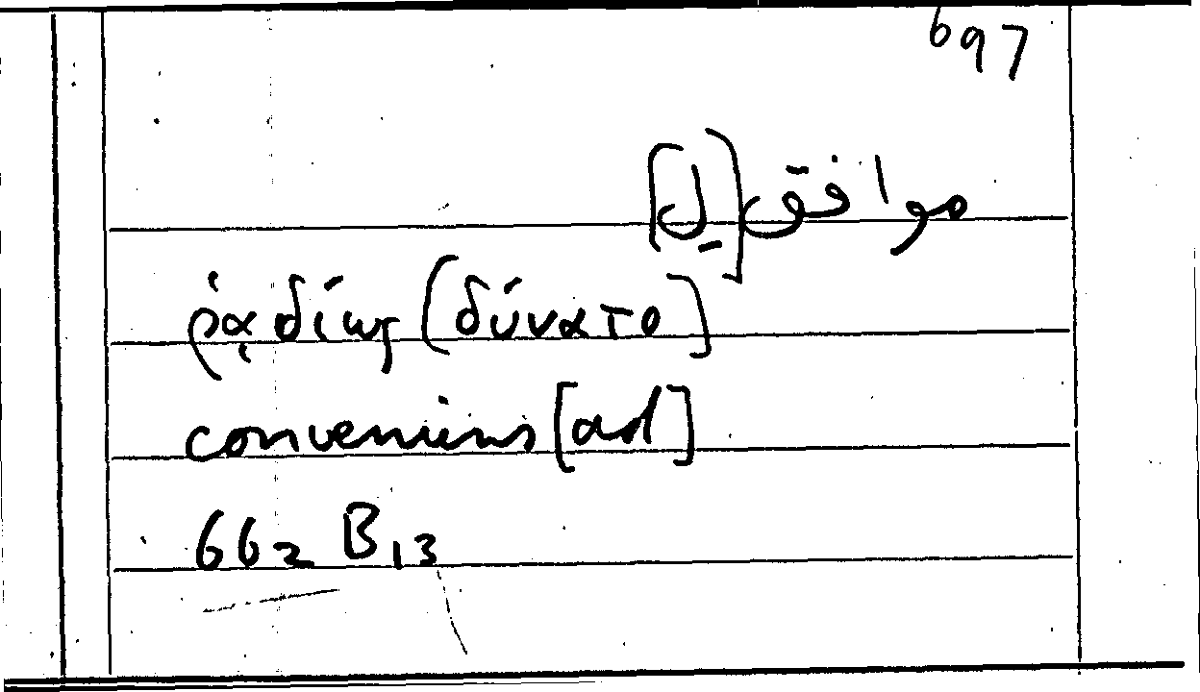 697
موافق [ل]
ῥᾳδίως [δύνατο]
conveniens [ad]
662 B 13